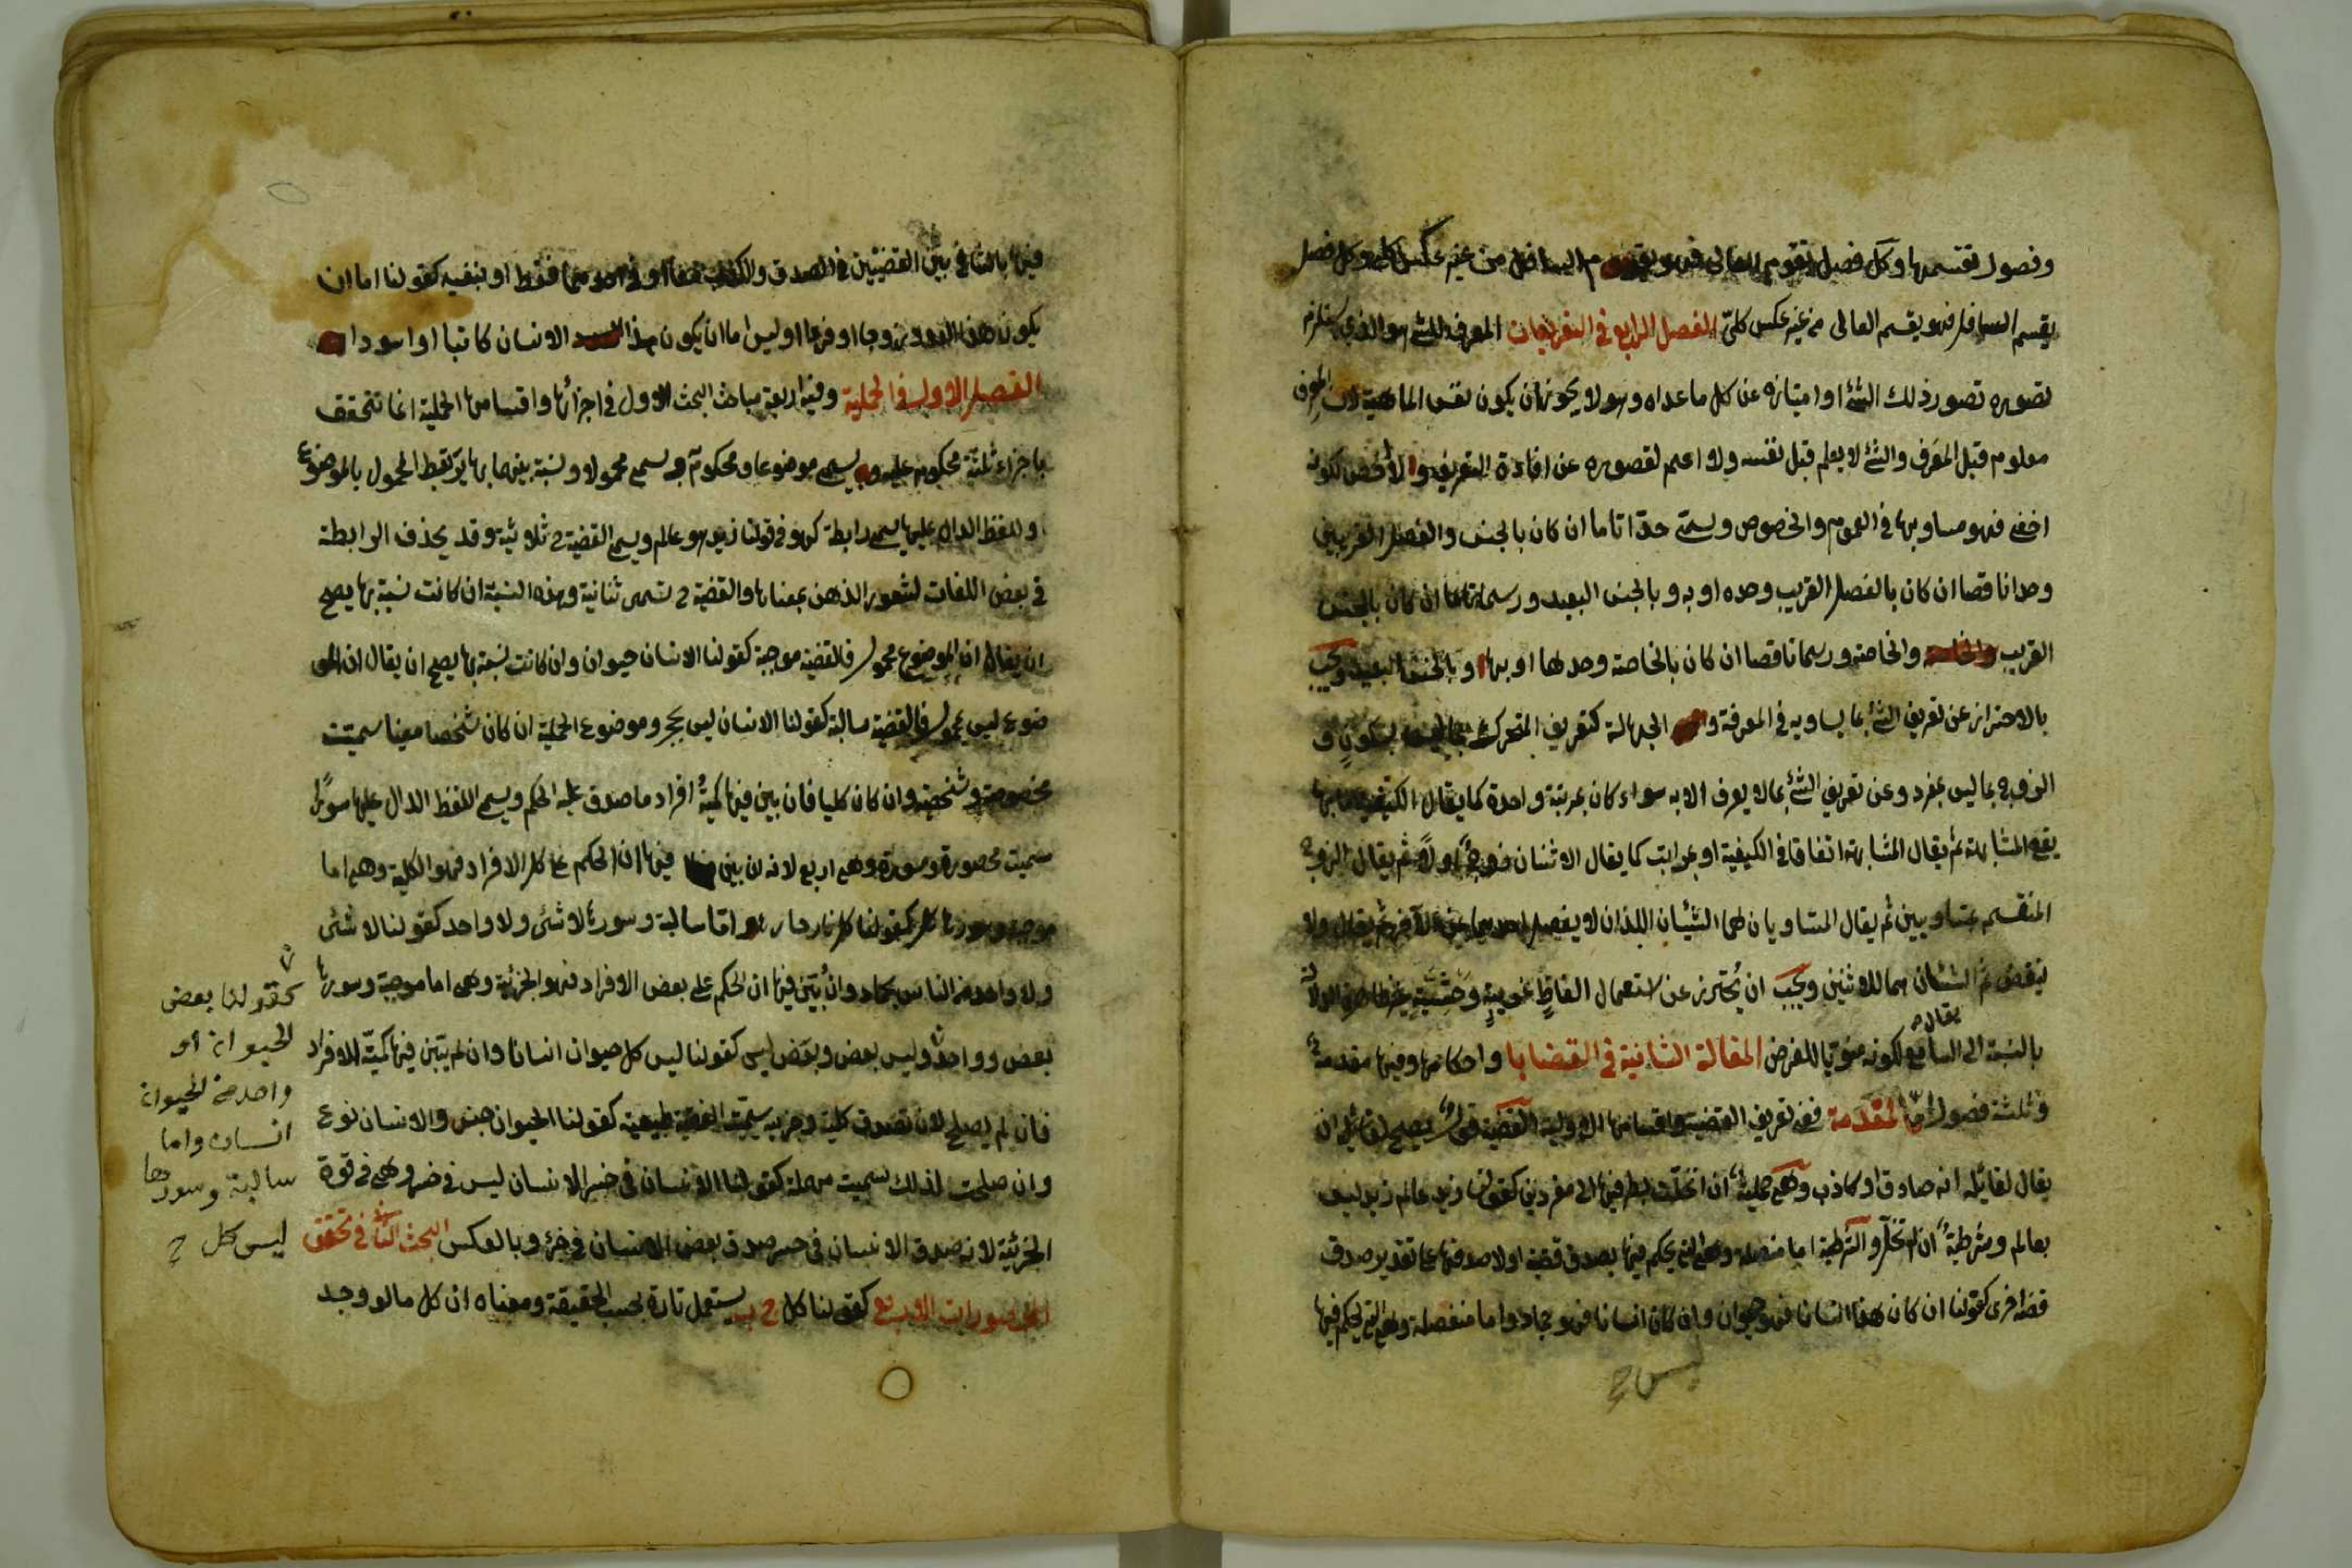 وفصول تقسمها وكل فصل يقوم العالى فهو يقوم السافل من غير عكس كلى وكل فصل
يقسم السافل فهو يقسم العالى من غير عكس كلى الفصل الرابع فى التعريفات المعرف للشئ هو الذى يستلزم
تصوره تصور ذلك الشئ او امتيازه عن كل ماعداه وهو لا يجوز ان يكون نفس الماهية لان المعرف
معلوم قبل المعرف والشئ لا يعلم قبل نفسه ولا اعم لقصوره عن افادة التعريف ولا اخص لكونه
اخفى فهو مساو بها فى العموم والخصوص ويسمى حدا تاما ان كان بالجنس والفصل القريبين
وحدا ناقصا ان كان بالفصل القريب وحده او به و بالجنس البعيد ورسما تاما ان كان بالجنس
القريب والخاصة ورسما ناقصا ان كان بالخاصة وحدها او بها و بالجنس البعيد ويجب
بالاحتراز عن تعريف الشئ بما يساويه فى المعرفة و الجهالة كتعريف المتحرك بما ليس بسكون و
الزوج بما ليس بفرد وعن تعريف الشئ بما لا يعرف الا به سواء كان بمرتبة واحدة كما يقال الكيفية ما بها
يقع المشابهة ثم يقال المشابهة اتفاق فى الكيفية او بمراتب كما يقال الاثنان زوج اولا ثم يقال الزوج
المنقسم بمتساويين ثم يقال المتساويان هما الشيئان اللذان لا يفصل احدهما عن الآخر ثم يقال ولا
ينقض ثم الشيئان هما الاثنين ويجب ان يحترز عن استعمال الفاظ غريبة وحشية غير ظاهرة الدلالة
يقال
بالنسبة الى السامع لكونه مفوتا للغرض المقالة الثانية فى القضايا و احكامها وفيها مقدمة
و ثلثة فصول اما المقدمة ففى تعريف القضية واقسامها الاولية القضية قول يصح لقائل ان
يقال لقائله انه صادق او كاذب وهى حملية ان انحلت بطرفيها الى مفردين كقولنا زيد عالم زيد ليس
بعالم وشرطية ان لم تنحل والشرطية اما متصلة وهى التى يحكم فيها بصدق قضية او لا صدقها على تقدير صدق
قضية اخرى كقولنا ان كان هذا انسانا فهو حيوان وان كان انسانا فهو جماد واما منفصلة وهى التى يحكم فيها
فيها بالتنافى بين القضيتين فى الصدق والكذب معا او فى احدهما فقط او بنفيه كقولنا اما ان
يكون هذا العدد زوجا او فردا او ليس اما ان يكون هذا الانسان كاتبا او اسودا
الفصل الاول فى الحملية وفيه اربعة مباحث البحث الاول فى اجزائها واقسامها الحملية انما تتحقق
باجزاء ثلثة محكوم عليه ويسمى موضوعا ومحكوم به ويسمى محمولا ونسبة بينهما بها يرتبط المحمول بالموضوع
واللفظ الدال عليها يسمى رابطة كهو فى قولنا زيد هو عالم ويسمى القضية ح ثلاثية وقد يحذف الرابطة
فى بعض اللغات لشعور الذهن بمعناها والقضية ح تسمى ثنائية وهذه النسبة ان كانت نسبة بها يصح
ان يقال ان الموضوع محمول فالقضية موجبة كقولنا الانسان حيوان وان كانت نسبة بها يصح ان يقال ان المو
ضوع ليس بمحمول فالقضية سالبة كقولنا الانسان ليس بحجر وموضوع الحملية ان كان شخصا معينا سميت
مخصوصة وشخصية وان كان كليا فان بين فيها كمية افراد ما صدق عليه الحكم ويسمى اللفظ الدال عليها سورا
سميت محصورة ومسورة وهى اربع لانه ان بين فيها ان الحكم على كل الافراد فهو الكلية وهى اما
موجبة وسورها كل كقولنا كل نار حارة واما سالبة وسورها لا شئ ولا واحد كقولنا لا شئ
ولا واحد من الناس بجماد وان بين فيها ان الحكم على بعض الافراد فهو الجزئية وهى اما موجبة وسورها
بعض وواحد وليس بعض وبعض ليس كقولنا ليس كل حيوان انسانا وان لم يتبين فيها كمية الافراد
فان لم يصلح لان تصدق كلية وجزئية سميت القضية طبيعية كقولنا الحيوان جنس والانسان نوع
وان صلحت لذلك سميت مهملة كقولنا الانسان فى خسر الانسان ليس فى خسر وهى فى قوة
الجزئية لانه صدق الانسان فى خسر صدق بعض الانسان فى خسر وبالعكس البحث الثانى فى تحقق
المحصورات الاربع كقولنا كل ج ب يستعمل تارة بحسب الحقيقة ومعناه ان كل ما لو وجد
كقولنا بعض
الحيوان او
واحد من الحيوان
انسان واما
سالبة وسورها
ليس كل ح